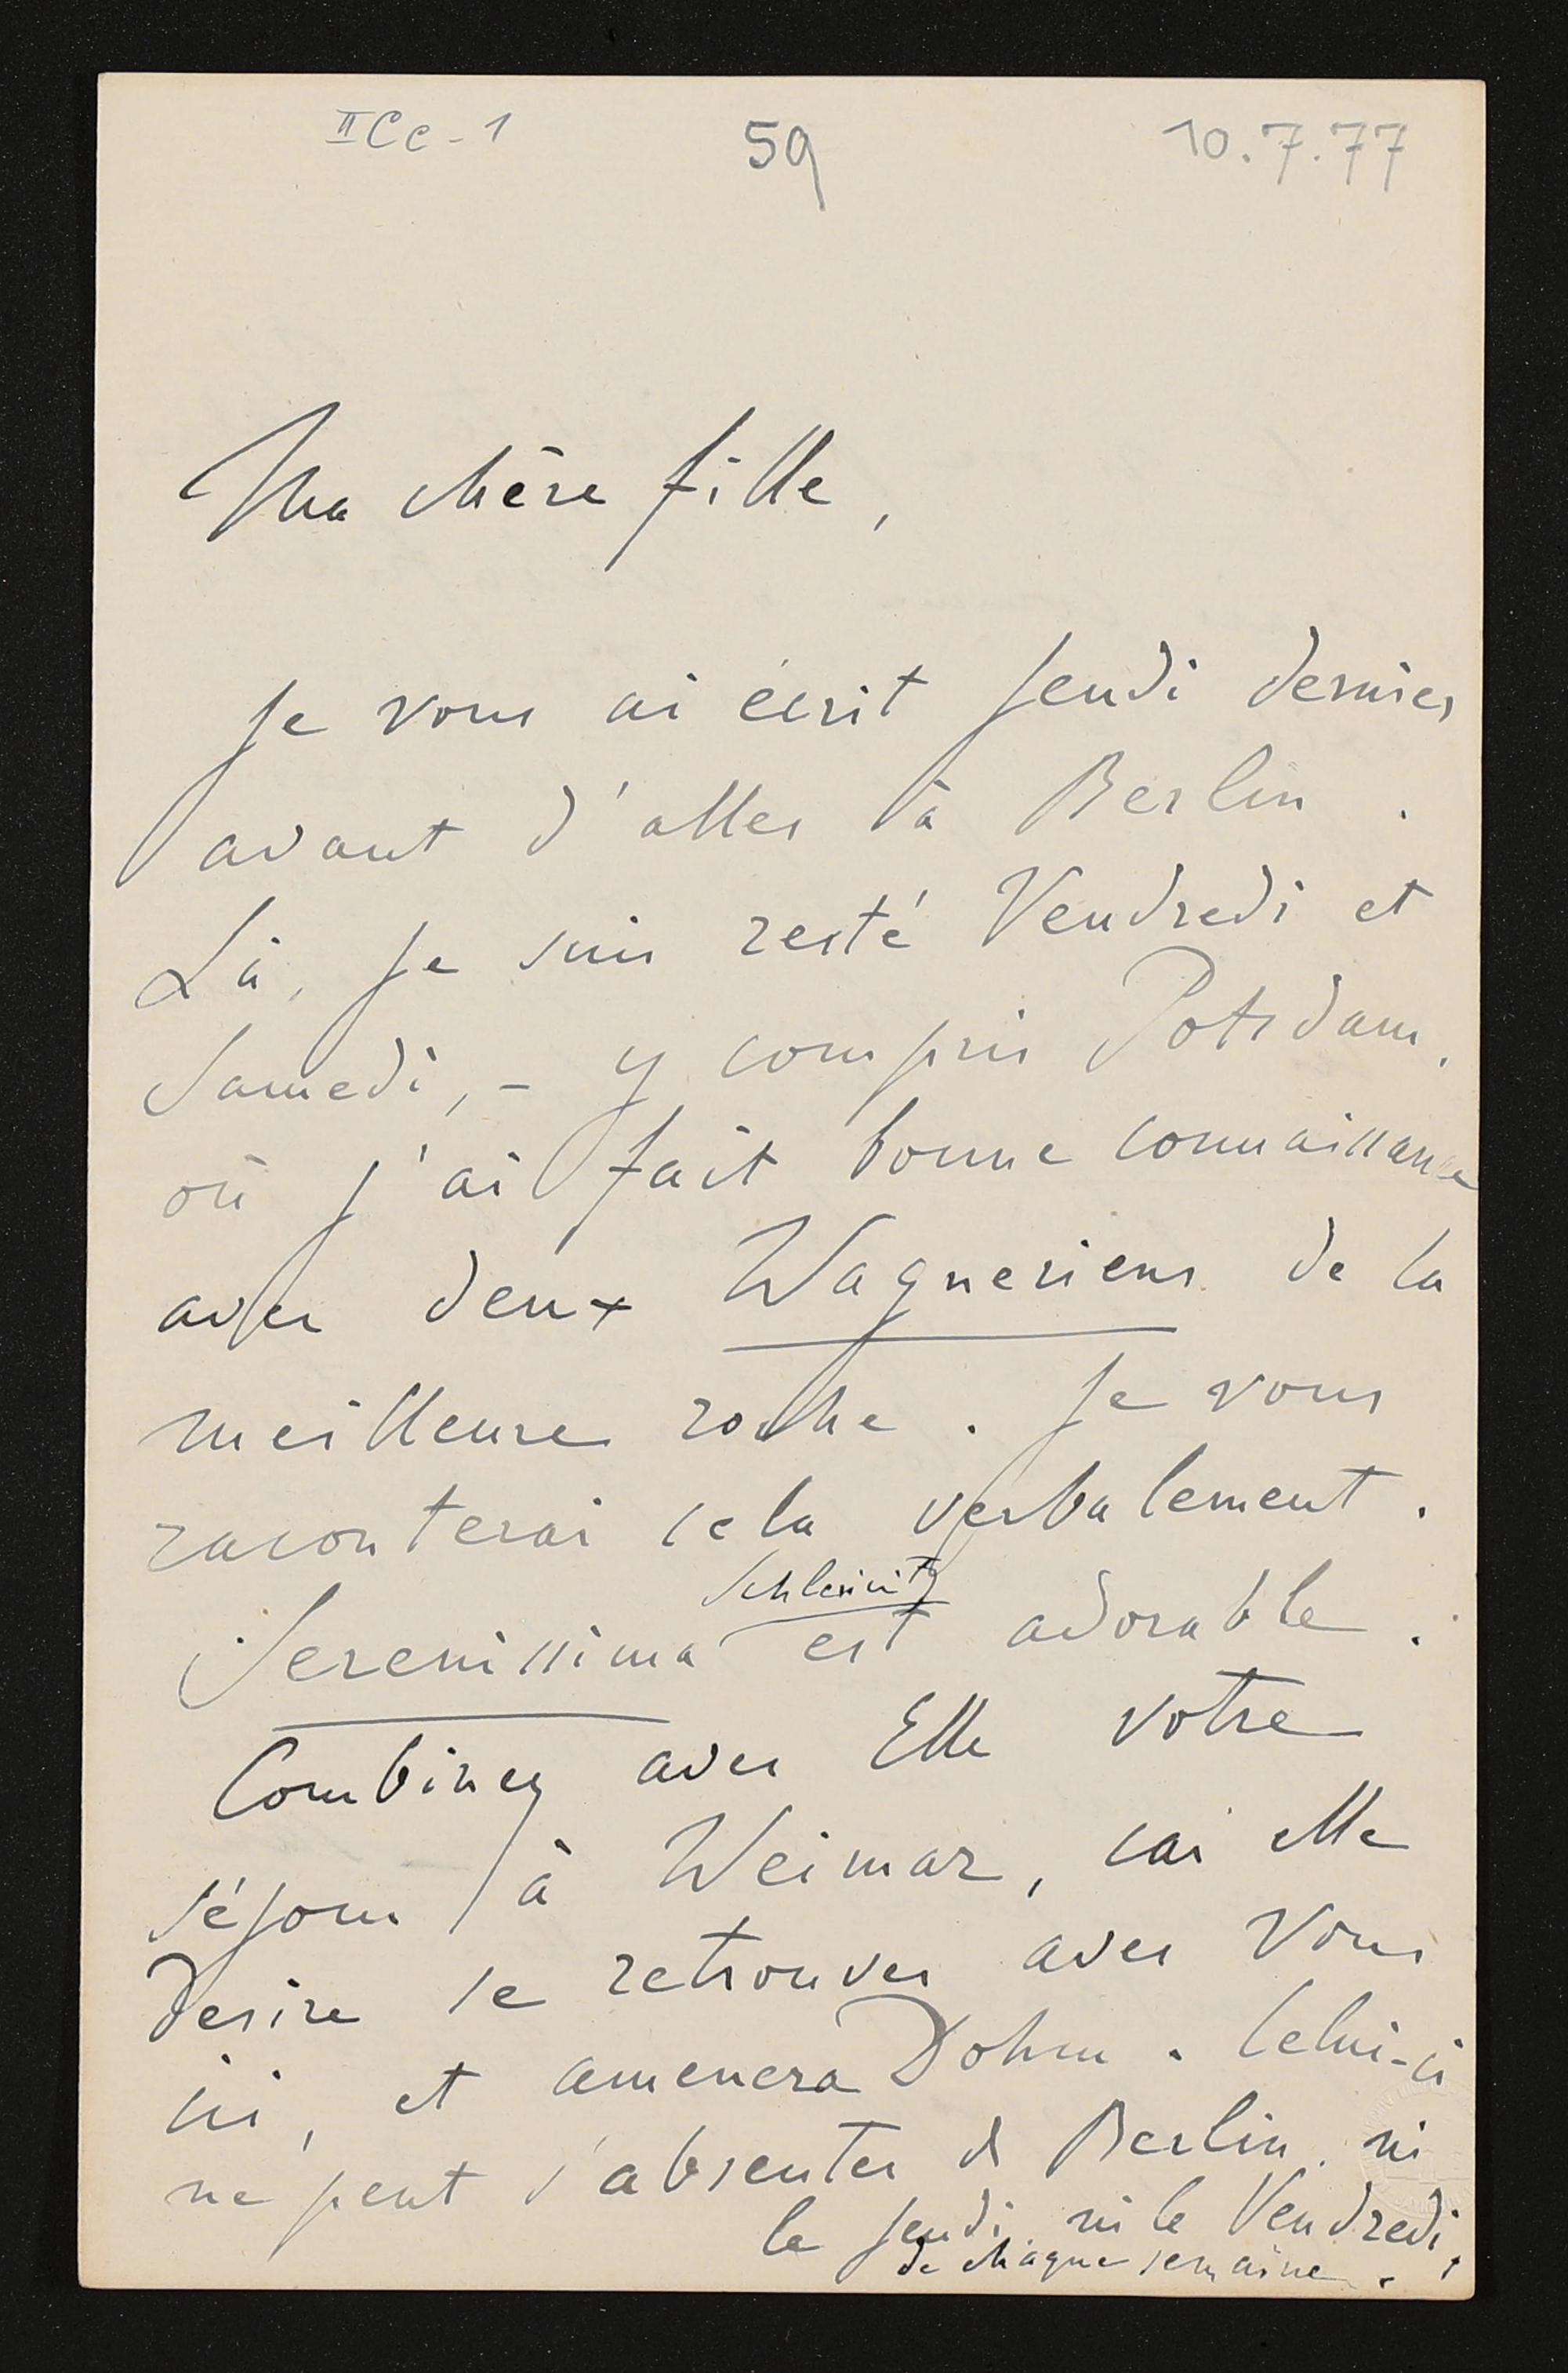 IICc-1 59 10.7.77
Ma chère fille,
Je vous ai écrit Jeudi dernier
avant d'aller à Berlin.
Là, je suis resté Vendredi et
Samedi, - y compris Potsdam,
où j'ai fait bonne connaissance
avec deux Wagneriens de la
meilleure roche. Je vous
raconterai cela verbalement.
Schleinitz
Serenissima est adorable.
Combinez avec Elle votre
séjour à Weimar, car elle
desire se retrouver avec Vous
ici, et amenera Dohm. Celui-ci
ne peut s'absenter de Berlin, ni
le Jeudi, ni le Vendredi,
de chaque semaine.